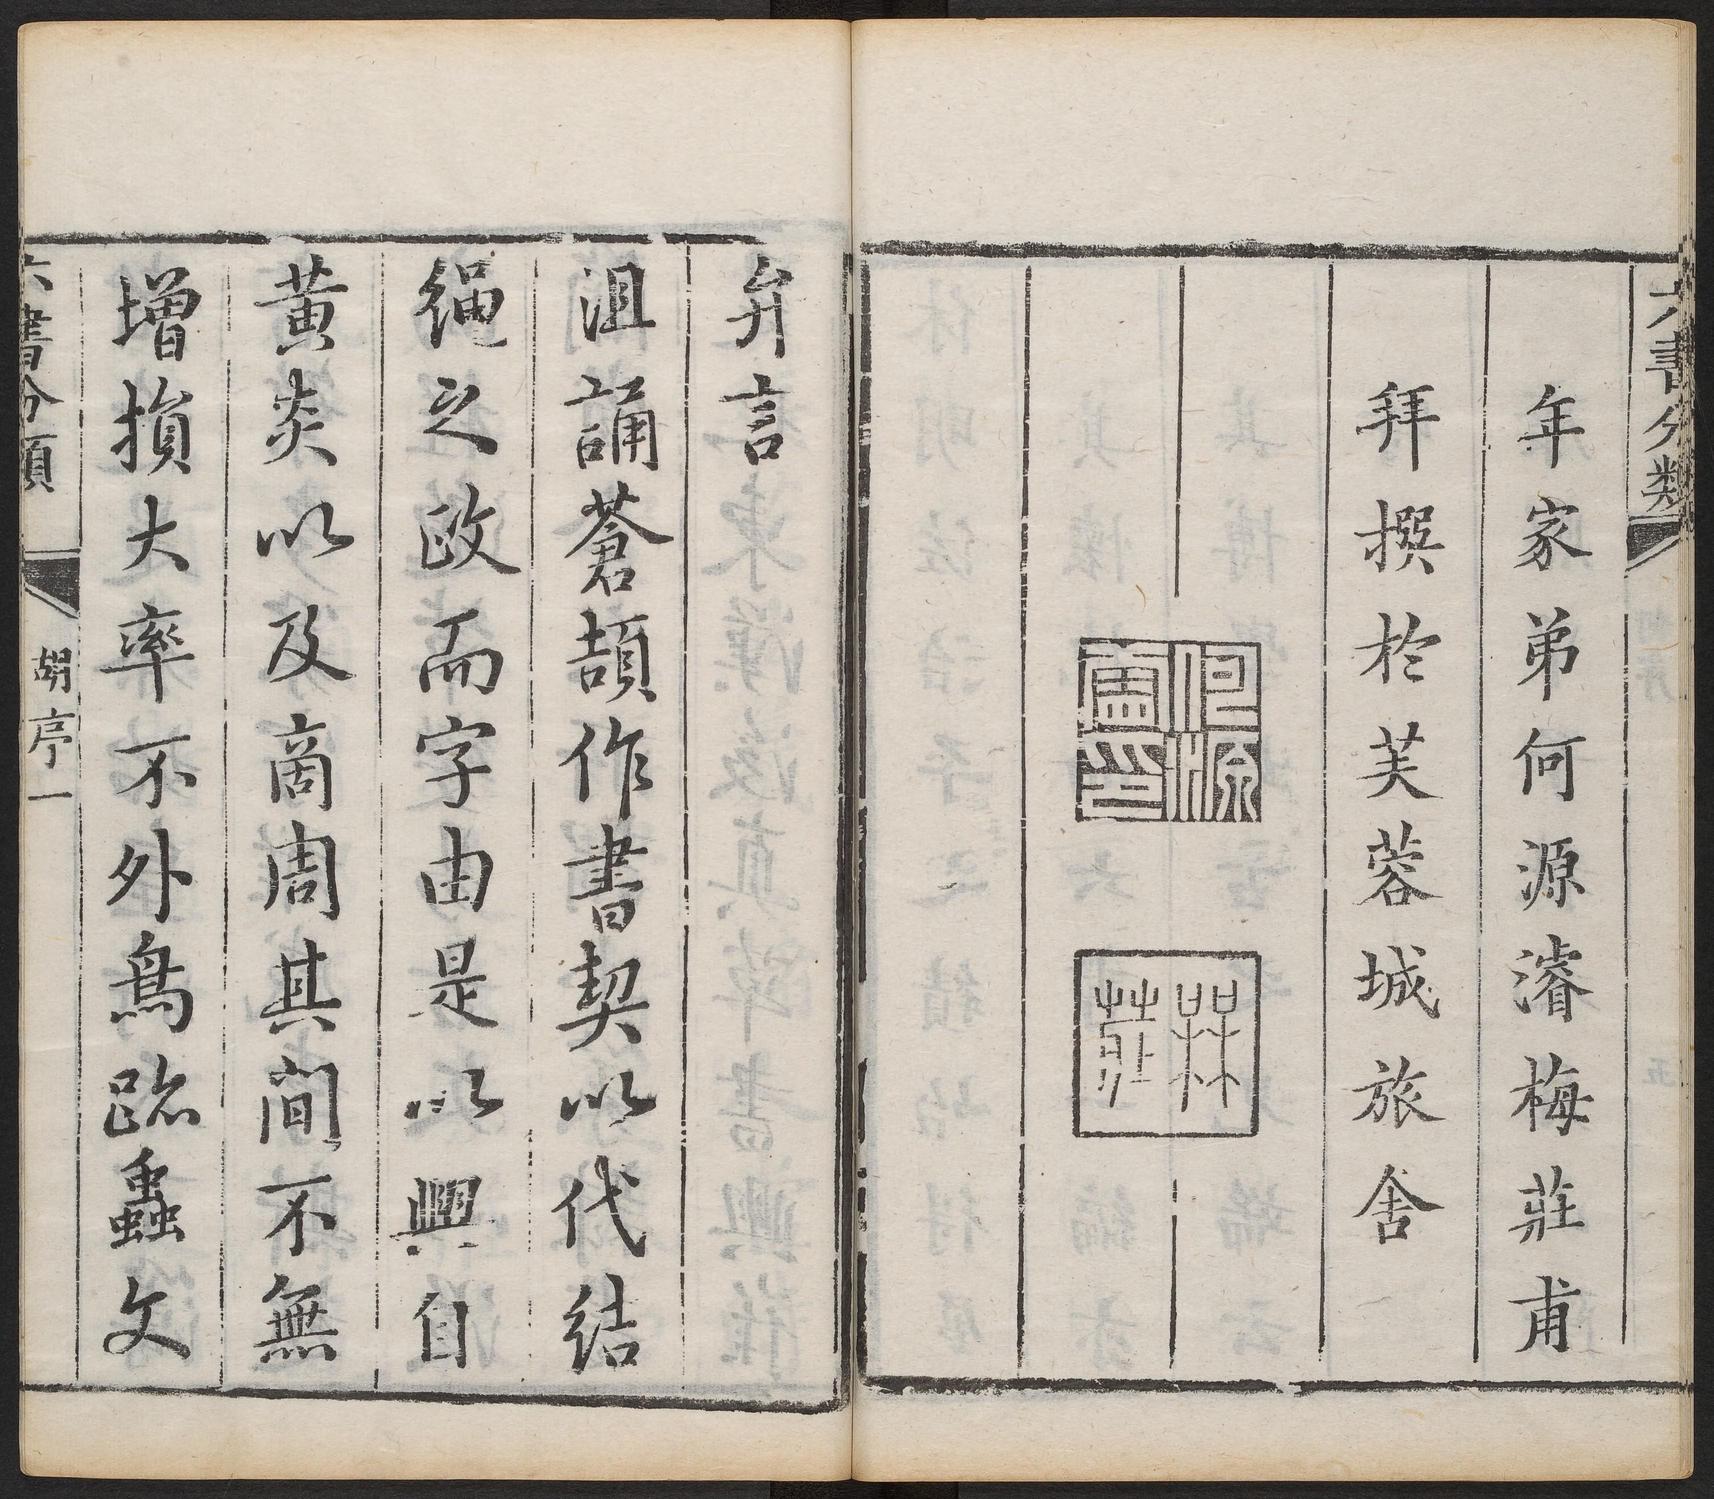 六書分類
年家弟何源濬梅莊甫
拜撰於芙蓉城旅舍
何源濬印
楳莊
弁言
沮誦蒼頡作書契以代結
繩之政而字由是以興自
黃炎以及商周其間不無
增損大率不外鳥跡蟲文
六書分類
胡序一